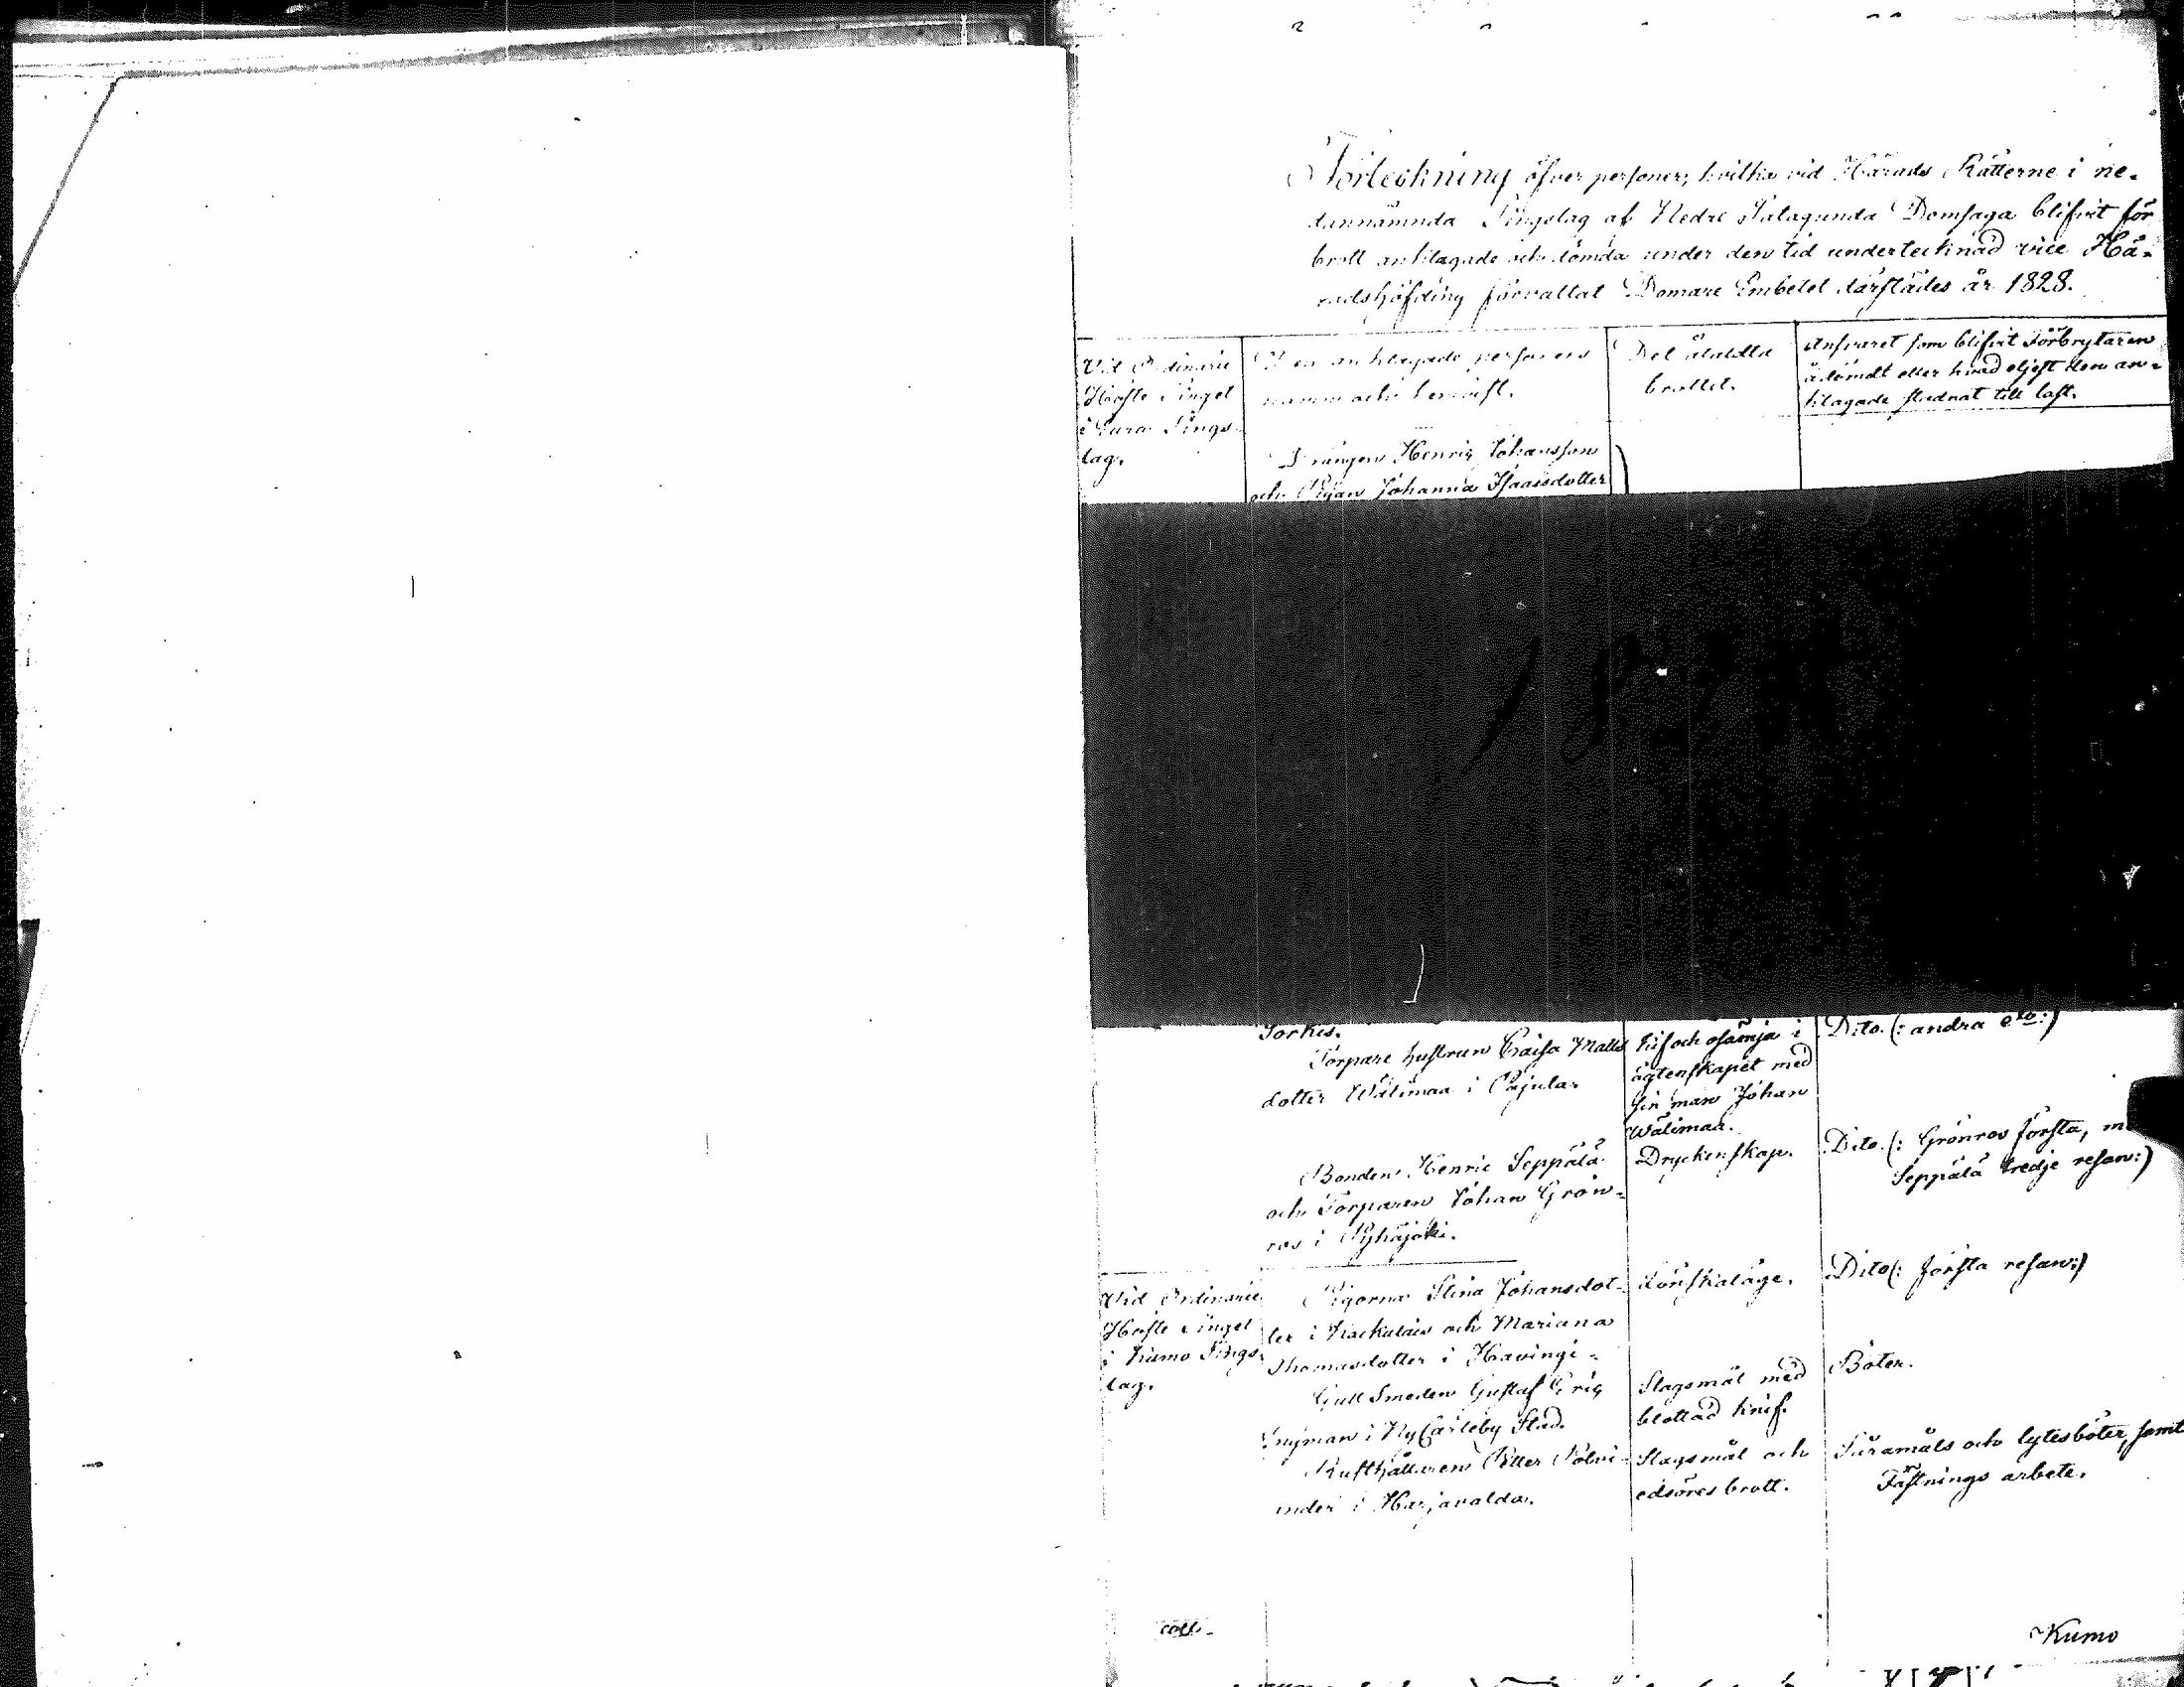 Förteckning öfver personer, hvilka vid Härads Rätterne i ne-
dannämnda Tingslag af Nedre Satagunda Domsaga blifvit för
brott anklagade och dömda under den tid undertecknad vice Hä-
radshöfding förvaltat Domare Embetet därstädes år 1828.
Vid Ordinarie
Höste Tinget
i Eura Tings-
lag.
Den anklagade personens
namn och hemvist.
Det åtaldta
brottet.
Ansvaret som blifvit Förbrytaren
ådömdt eller hvad eljest den an-
klagade stadnat till last.
Drängen Henric Johansson
och Pigan Johanna Isaacsdotter
Torpare hustrun Caisa Matts
dotter Wälimaa i Pajula.
Kif och osämja i
ägtenskapet med
sin man Johan
Wälimaa.
Dito. (: andra dto:)
Bonden Henric Seppälä
och Torparen Johan Grön-
ros i Pyhäjoki.
Dryckenskap.
Dito. (: Grönros första,
Seppälä tredje resan:)
Vid Ordinarie
Höste Tinget
i Kumo Tings-
lag.
Pigorna Stina Johansdot-
ter i och Mariana
Thomasdotter i
Lönskaläge.
Dito (: första resan:)
Gull Smeden Gustaf Eric
Snyman i NyCarleby Stad.
Slagsmål med
blottad knif.
Böter.
Rusthållaren Petter
i Harjavalda.
Slagsmål och
edsöres brott.
Såramåls och lytesböter, samt
Fästnings arbete.
coll.
Kumo